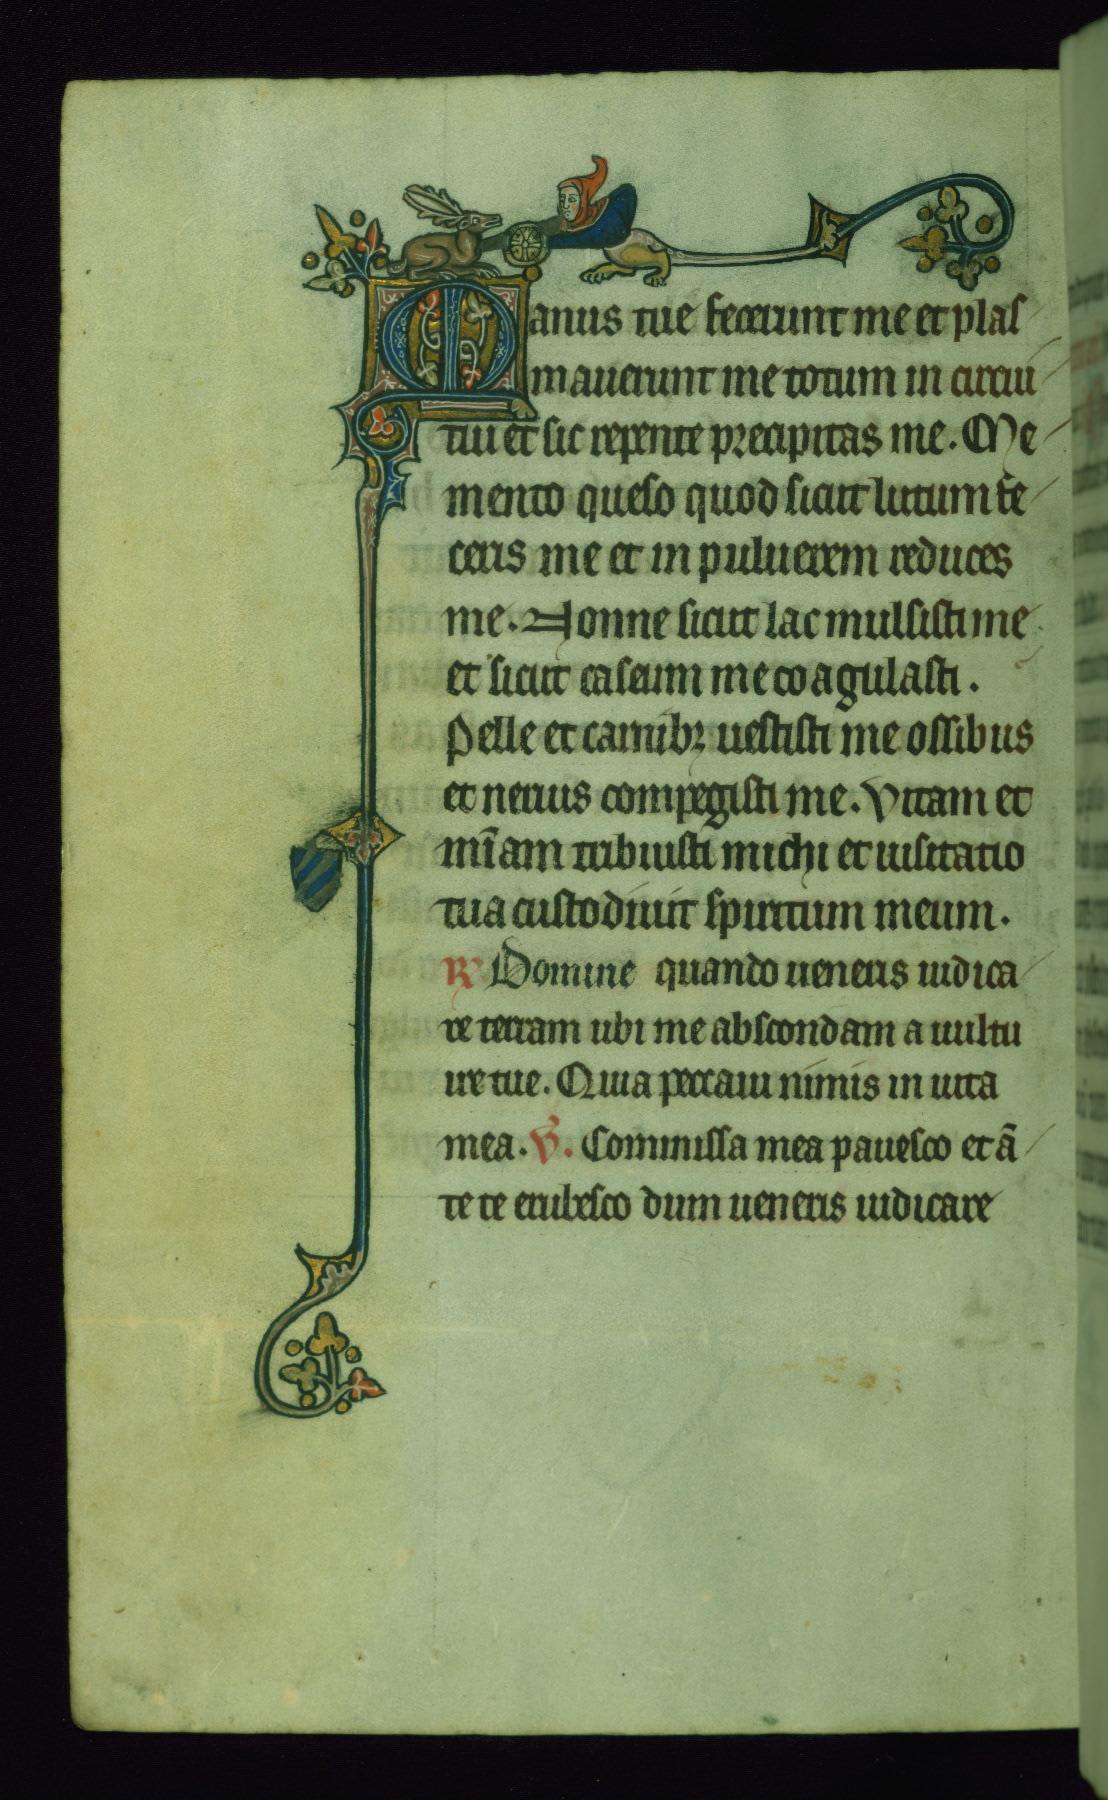 Manus tue fecerunt me et plas
mauerunt me totum in circui
tiu et sic repente precipitas me. Me
mento queso quod sicut lutum fe
ceris me et in puluerem reduces
me. Nonne sicut lac mulsisti me
et sicut caseum me coagulasti.
Pelle et carnibꝫ uestisti me ossibus
et neruis compegisti me. Vitam et
mĩam tribuisti michi et uisitatio
tua custodiuit spiritum meum.
℞ Domine quando ueneris iudica
re terram ubi me abscondam a uultu
ire tue. Quia peccaui nimis in uita
mea. ℣. Commissa mea pauesco et ã
te te erubesco dum ueneris iudicare